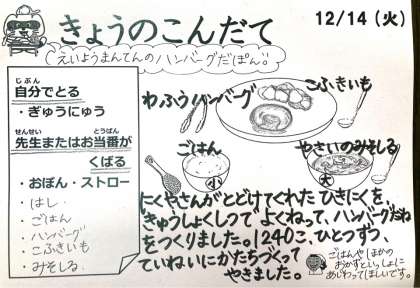 きょうのこんだて
12/14(火)
えいようまんてんのハンバーグだぽん!!
じぶん
自分でとる
・ぎゅうにゅう
せんせい とうばん
先生またはお当番が
くばる
・おぼん・ストロー
・はし
・ごはん
・ハンバーグ
・こふきいも
・みそしる
わふうハンバーグ
こふきいも
ごはん
小
やさいのみそしる
大
にくやさんがとどけてくれた ひきにくを、
きゅうしょくしつで よくねって、ハンバーグだね
をつくりました。1240こ、ひとつずつ、
ていねいにかたちづくって
やきました。
ごはんや ほかの
おかずといっしょに
あじわってほしいです。